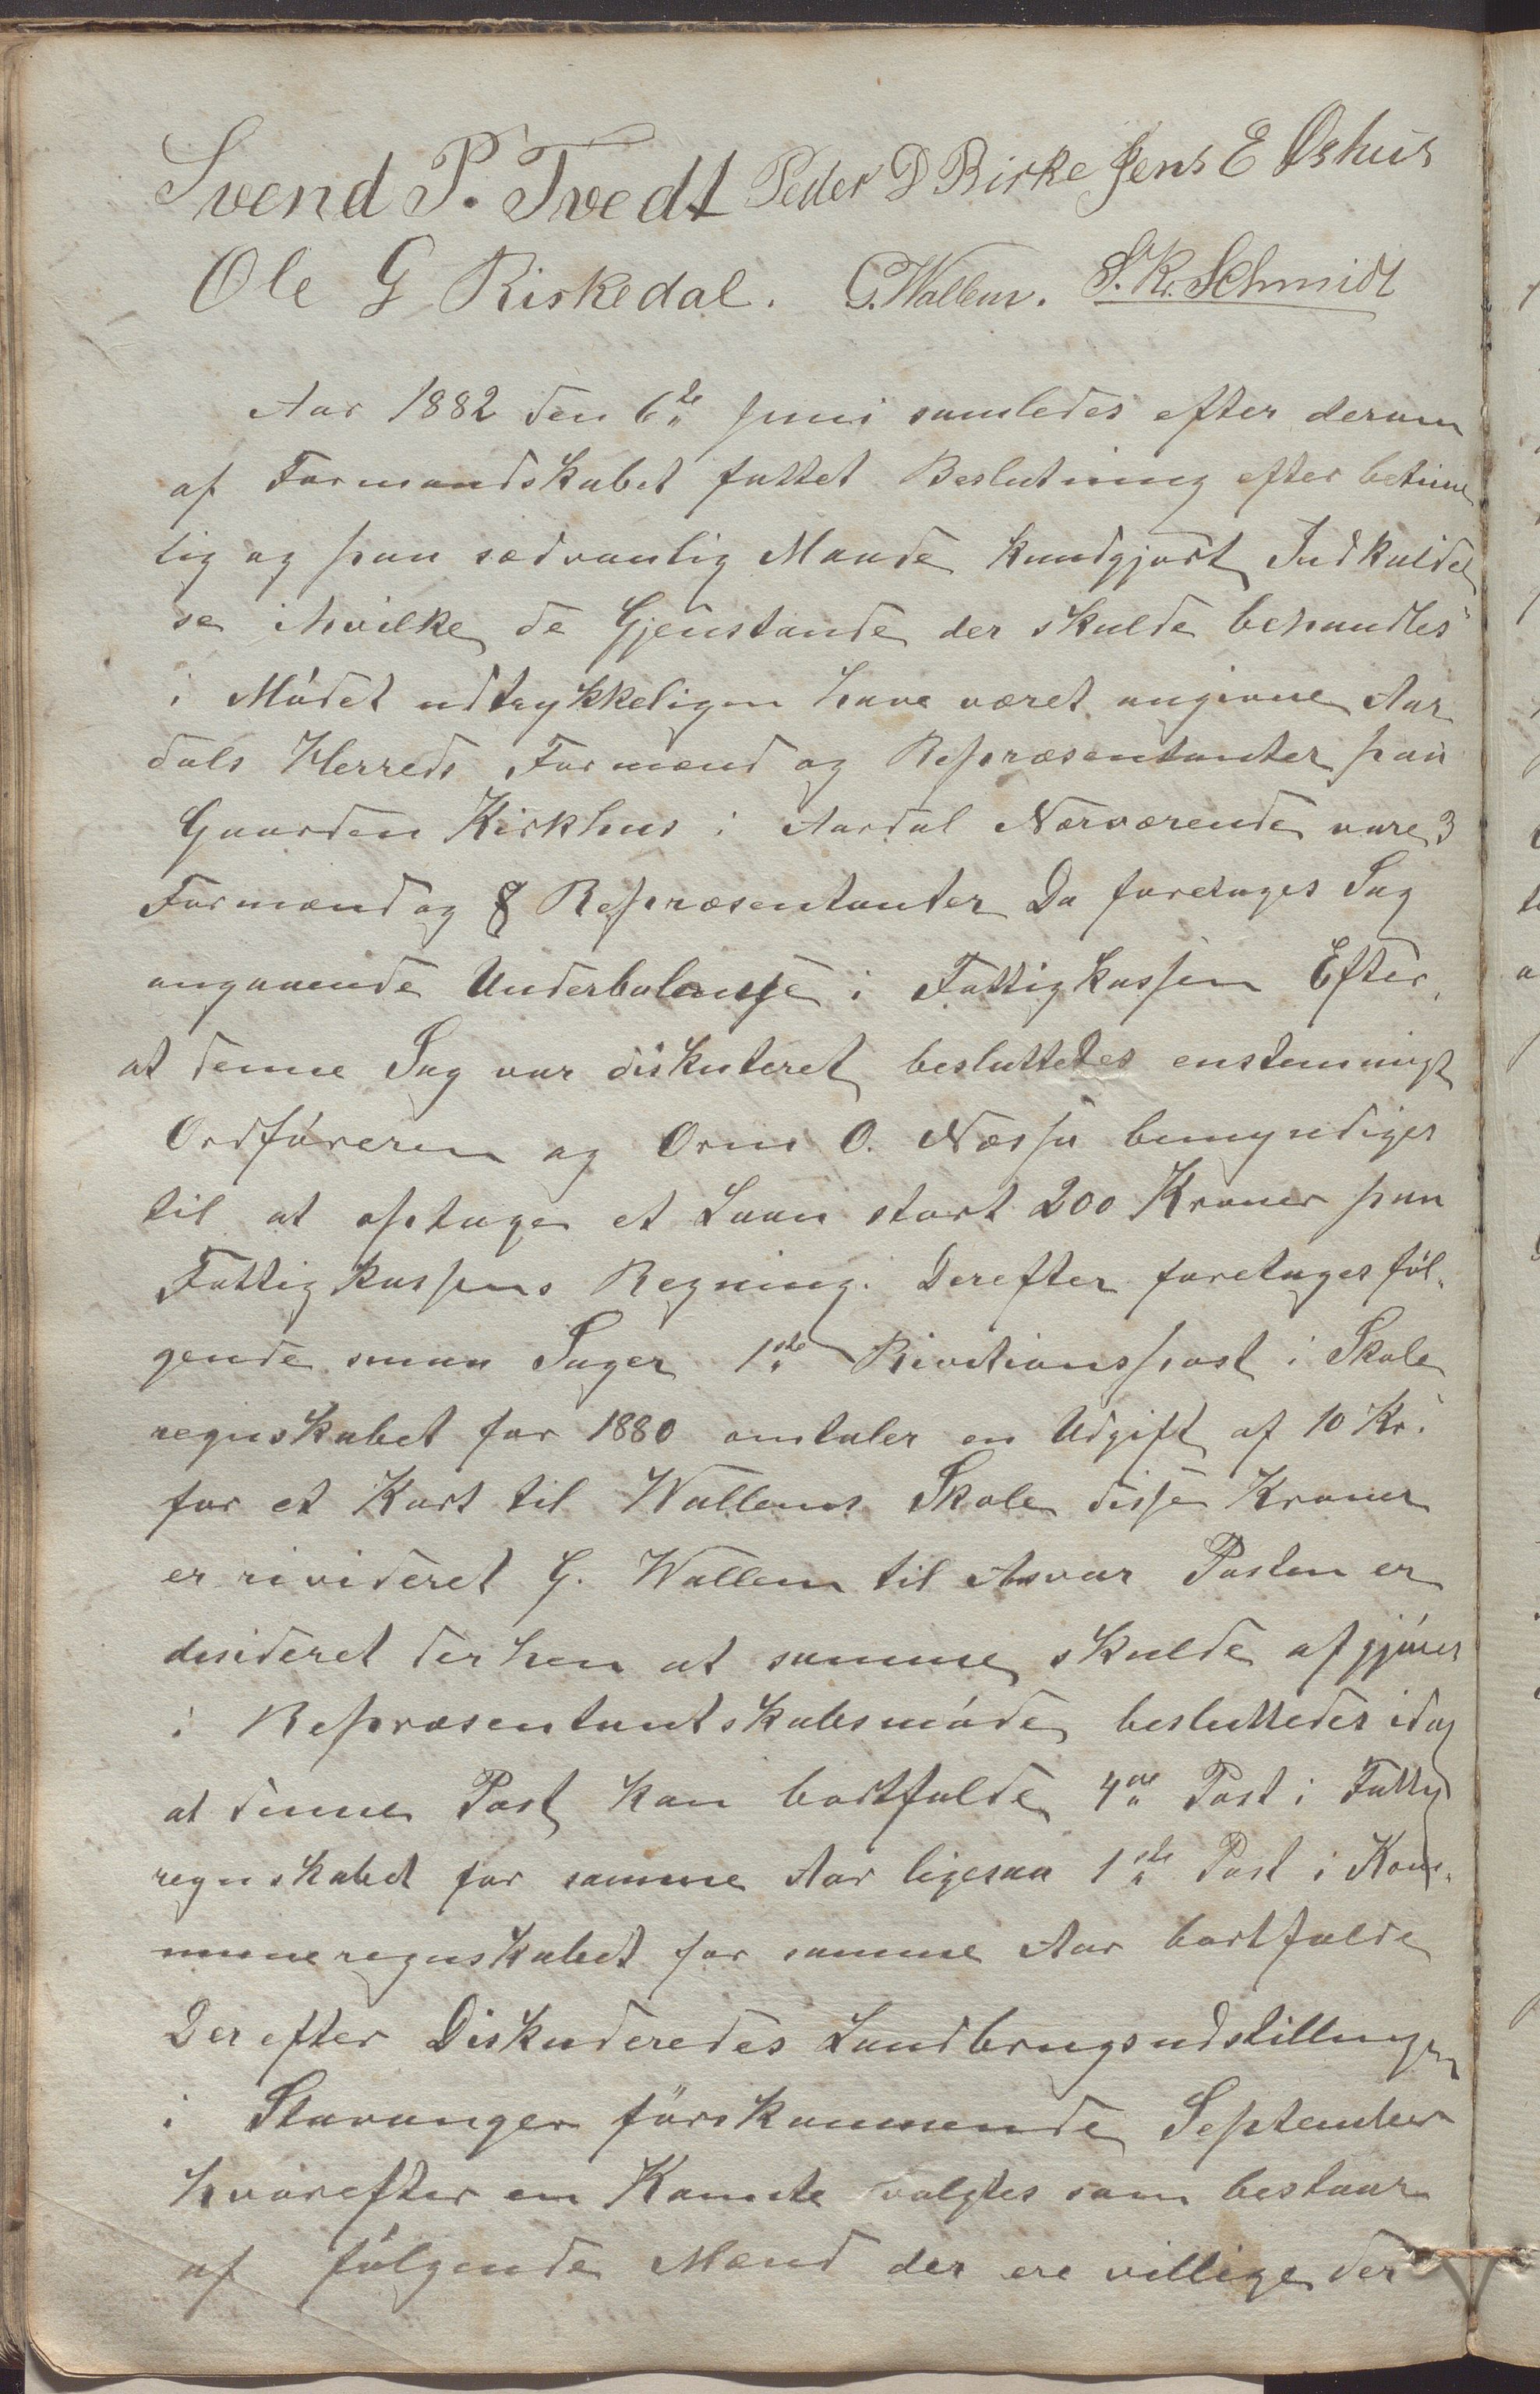 Svend P. Tvedt Peder D Birke Jens E Oshus
Ole G Riskedal. G. Wallem. S. K. Schmidt
Aar 1882 den 6te Juni samledes efter derom
af Formandskabet fattet Beslutning efter betime
lig og paa sædvanlig Maade kundgjort Indkaldel
se i hvilke de Gjenstande der skulde behandles
i Mødet udtrykkeligen have været angivne Aar
dals Herreds Formænd og Repræsentanter paa
Gaarden Kirkhus i Aardal Nærværende vare 3
Formænd og 8 Repræsentanter Da foretages Sag
angaaende Underbalanse i Fattigkassen Efter
at denne Sag var diskuteret besluttedes enstemmigt
Ordføreren og Orm O. Næssa bemyndiges
til at optage et Laan stort 200 Kroner paa
Fattigkassens Regning. Derefter foretages føl-
gende smaa Sager 1ste Rivitionspost i Skole
regnskabet for 1880 omtaler en Udgift af 10 Kr.
for et Kart til Wallems Skole disse Kroner
er rivideret G. Wallem til Ansvar Posten er
desideret derhen at samme skulde afgjøres
i Repræsentantskabsmøde besluttedes idag
at denne Post kan bortfalde 4de Post i Fattig
regnskabet for samme Aar ligesaa 1ste Post i Kom-
muneregnskabet for samme Aar bortfalde
Derefter Diskuderedes Landbrugsudstillingen
i Stavanger førskommende September
hvorefter en Komite valgtes som bestaar
af følgende Mænd der ere villige der